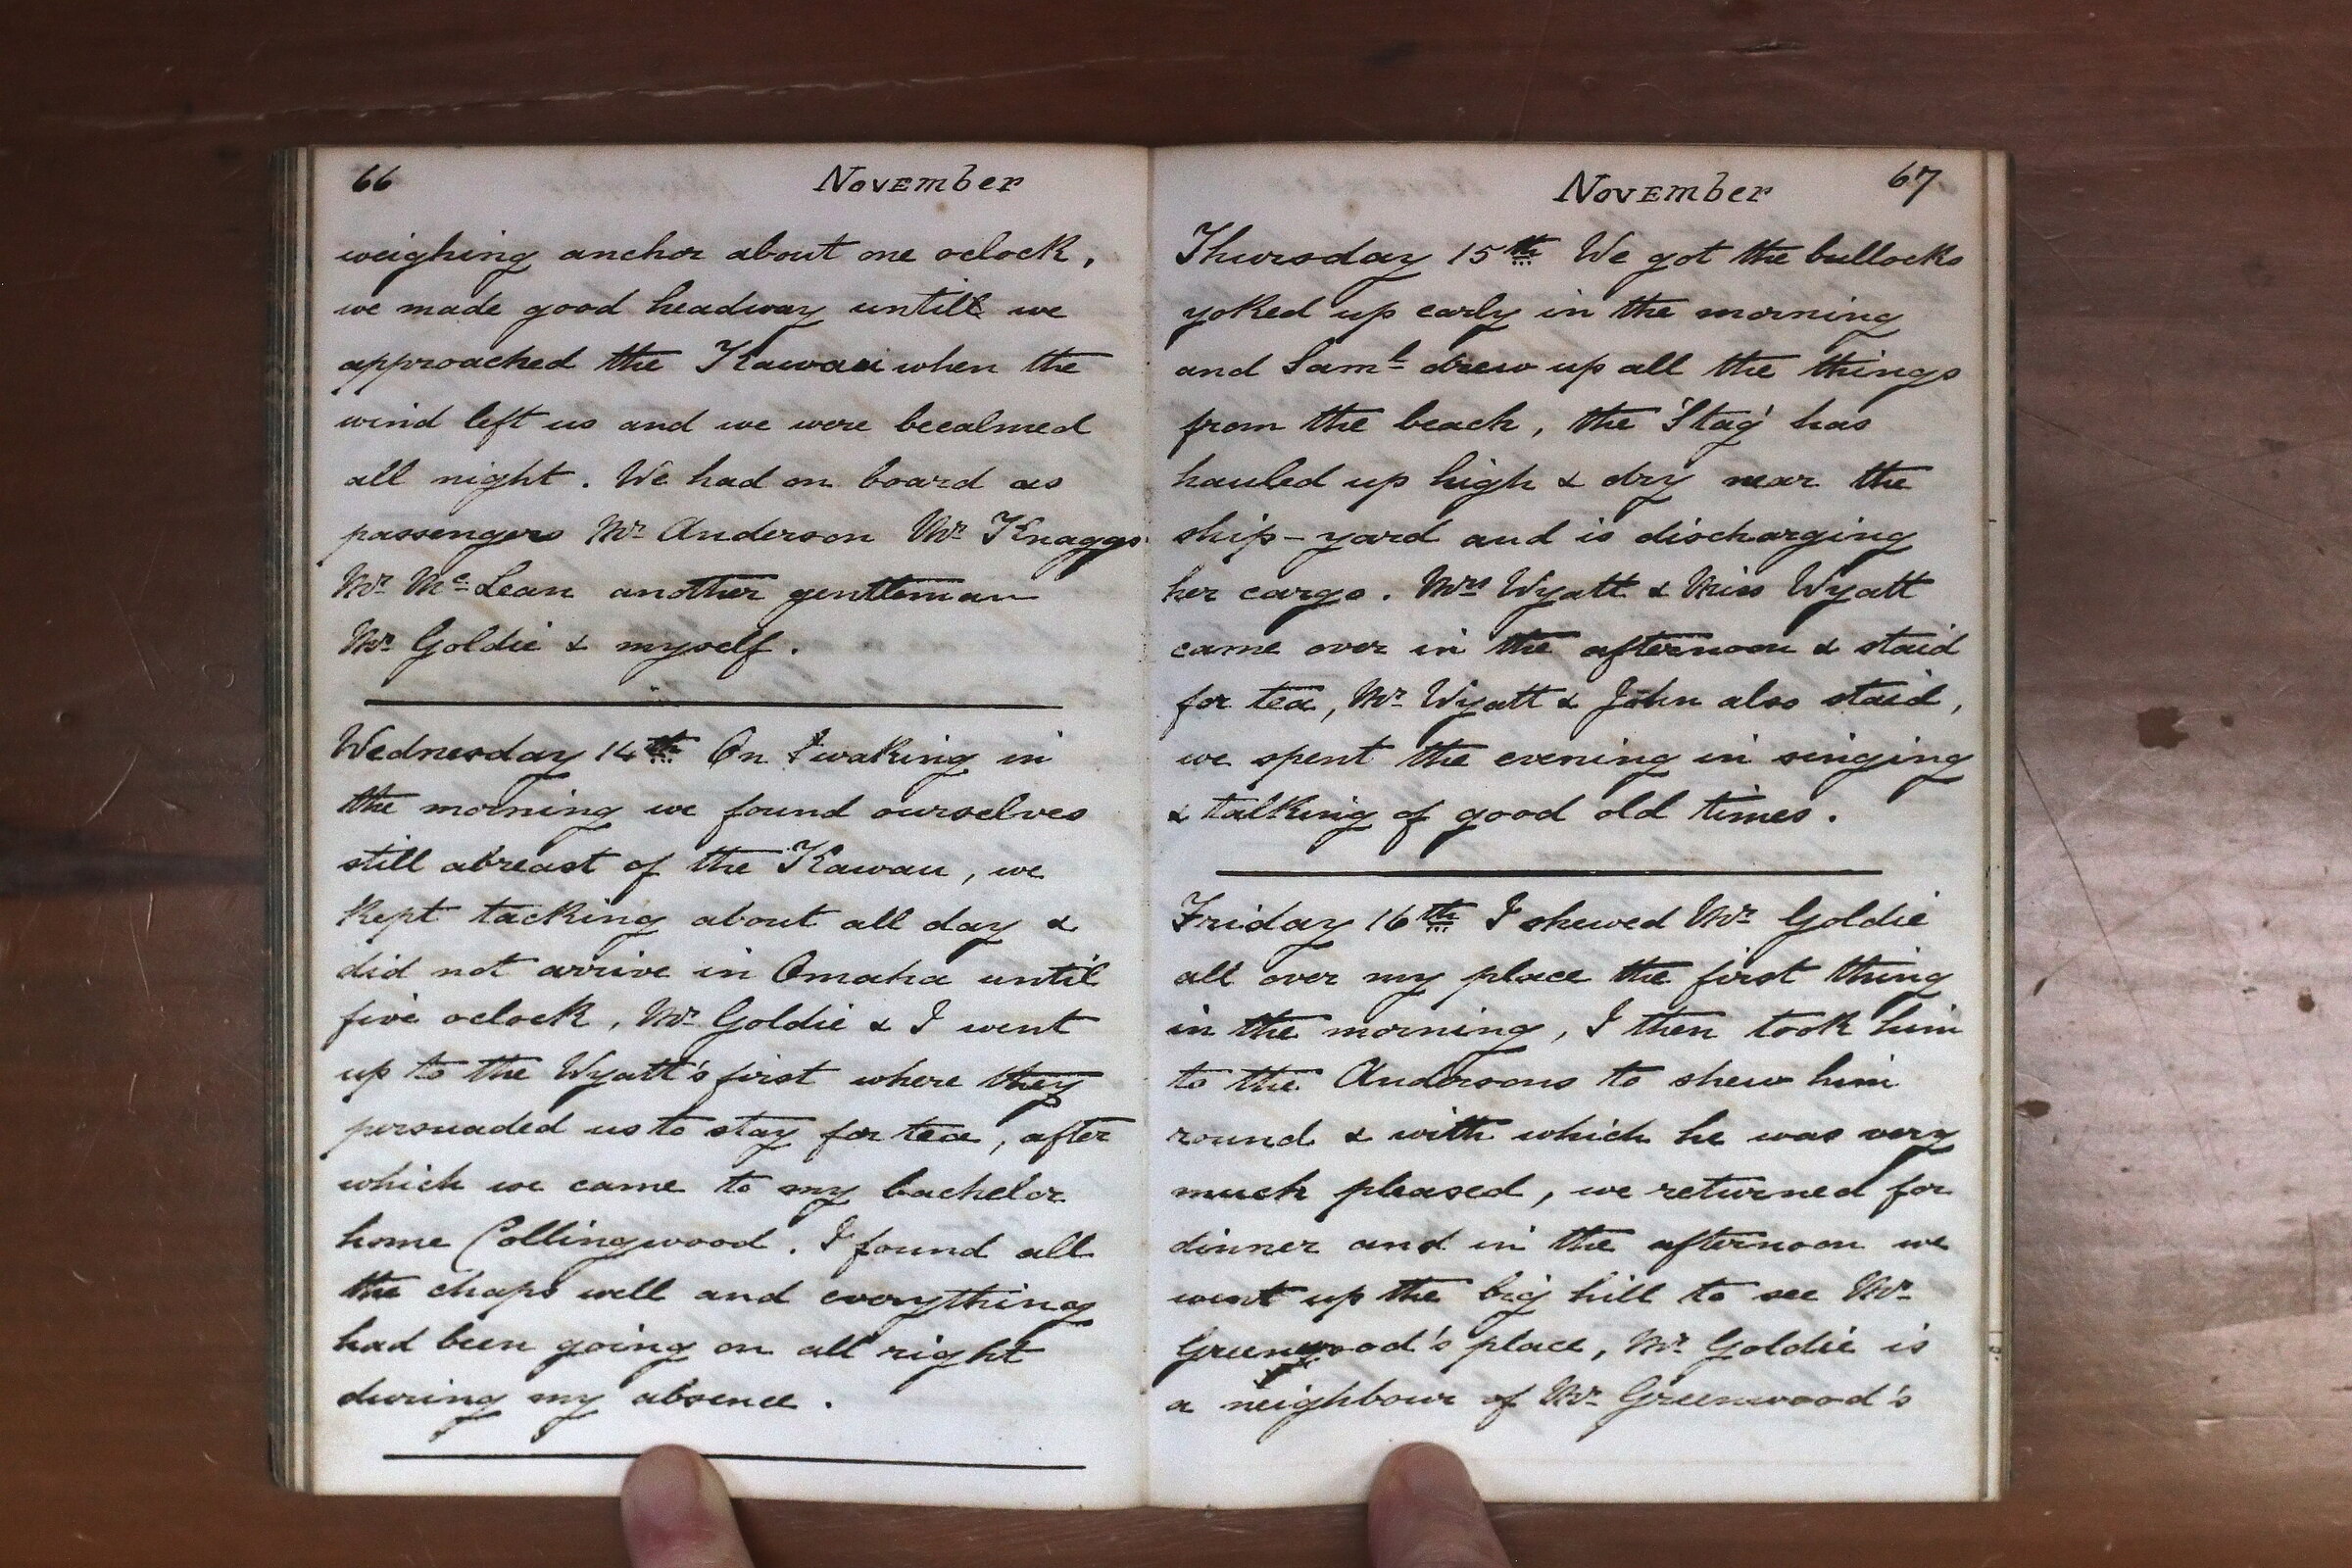 66 November
weighing anchor about one oclock,
we made good headway untill we
approached the Kawau when the
wind left us and we were becalmed
all night. We had on board as
passengers Mr Anderson Mr Knaggs
Mr McLean another gentleman
Mr Goldie & myself.
Wednesday 14th On waking in
the morning we found ourselves
still abreast of the Kawau, we
kept tacking about all day &
did not arrive in Omaha until
five oclock, Mr Goldie & I went
up to the Wyatt's first where they
persuaded us to stay for tea, after
which we came to my bachelor
home Collingwood. I found all
the chaps well and everything
had been going on all right
during my absence.
November 67
Thursday 15th We got the bullocks
yoked up early in the morning
and Saml drew up all the things
from the beach, the 'Stag' has
hauled up high & dry near the
ship-yard and is discharging
her cargo. Mrs Wyatt & Miss Wyatt
came over in the afternoon & staid
for tea, Mr Wyatt & John also staid,
we spent the evening in singing
& talking of good old times.
Friday 16th I shewed Mr Goldie
all over my place the first thing
in the morning, I then took him
to the Andersons to shew him
round & with which he was very
much pleased, we returned for
dinner and in the afternoon we
went up the big hill to see Mr
Greenwood's place, Mr Goldie is
a neighbour of Mr Greenwood's